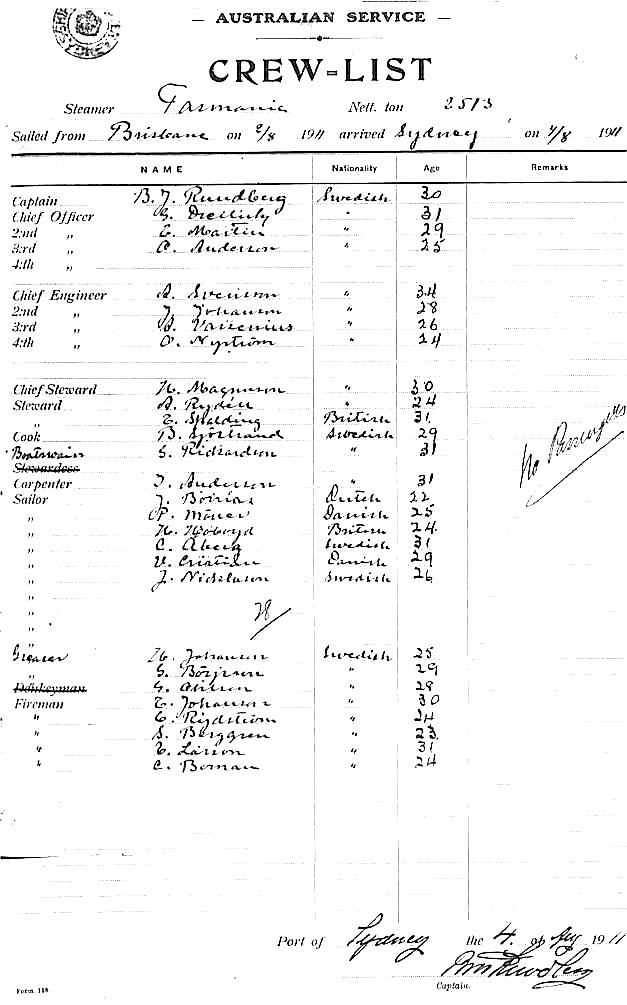 — AUSTRALIAN SERVICE —
CREW=LIST
Steamer Tasmanic Nett. ton 2513
Sailed from Brisbane on 2/8 1911 arrived Sydney on 4/8 1911
NAME Nationality Age Remarks
Captain B. J. Rundberg Swedish 30
Chief Officer G. " 31
2nd „ E. Martin " 29
3rd „ A. Anderson " 25
4th „
Chief Engineer A. Svenson " 34
2nd „ J. Johanson " 28
3rd „ A. " 26
4th „ O. Nyström " 24
Chief Steward H. Magnuson " 30
Steward A. Rydén " 24
„ E. Spalding British 31
Cook B. Sjöstrand Swedish 29
Boatswain G. Richardson " 31
Stewardess
Carpenter J. Anderson " 31
Sailor J. Dutch 22
„ P. Danish 25
„ H. British 24
„ C. Åberg Swedish 31
„ V. Danish 29
„ J. Nicklason Swedish 26
„
„ 28/
„
„
Greaser H. Johanson Swedish 25
„ G. Börjeson " 29
Donkeyman G. " 28
Fireman E. Johanson " 30
" C. Rydström " 24
" S. Berggren " 23
" E. Larson " 31
" C. Boman " 24
No Passengers
Port of Sydney the 4. of Aug 1911
Captain.
Form. 118